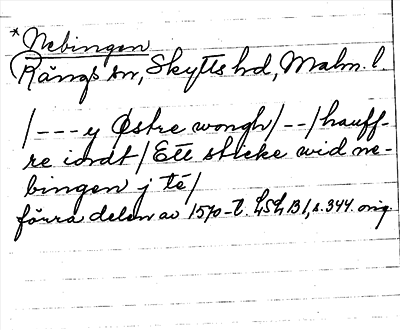 *Nebingen
Rängs sn, Skytts hd, Malm. l.
/---y Østre wongh/--/hauff-
re iordt/Ett sticke wid ne-
bingen j té/
förra delen av 1570-t. LSH B1, s. 344. orig.